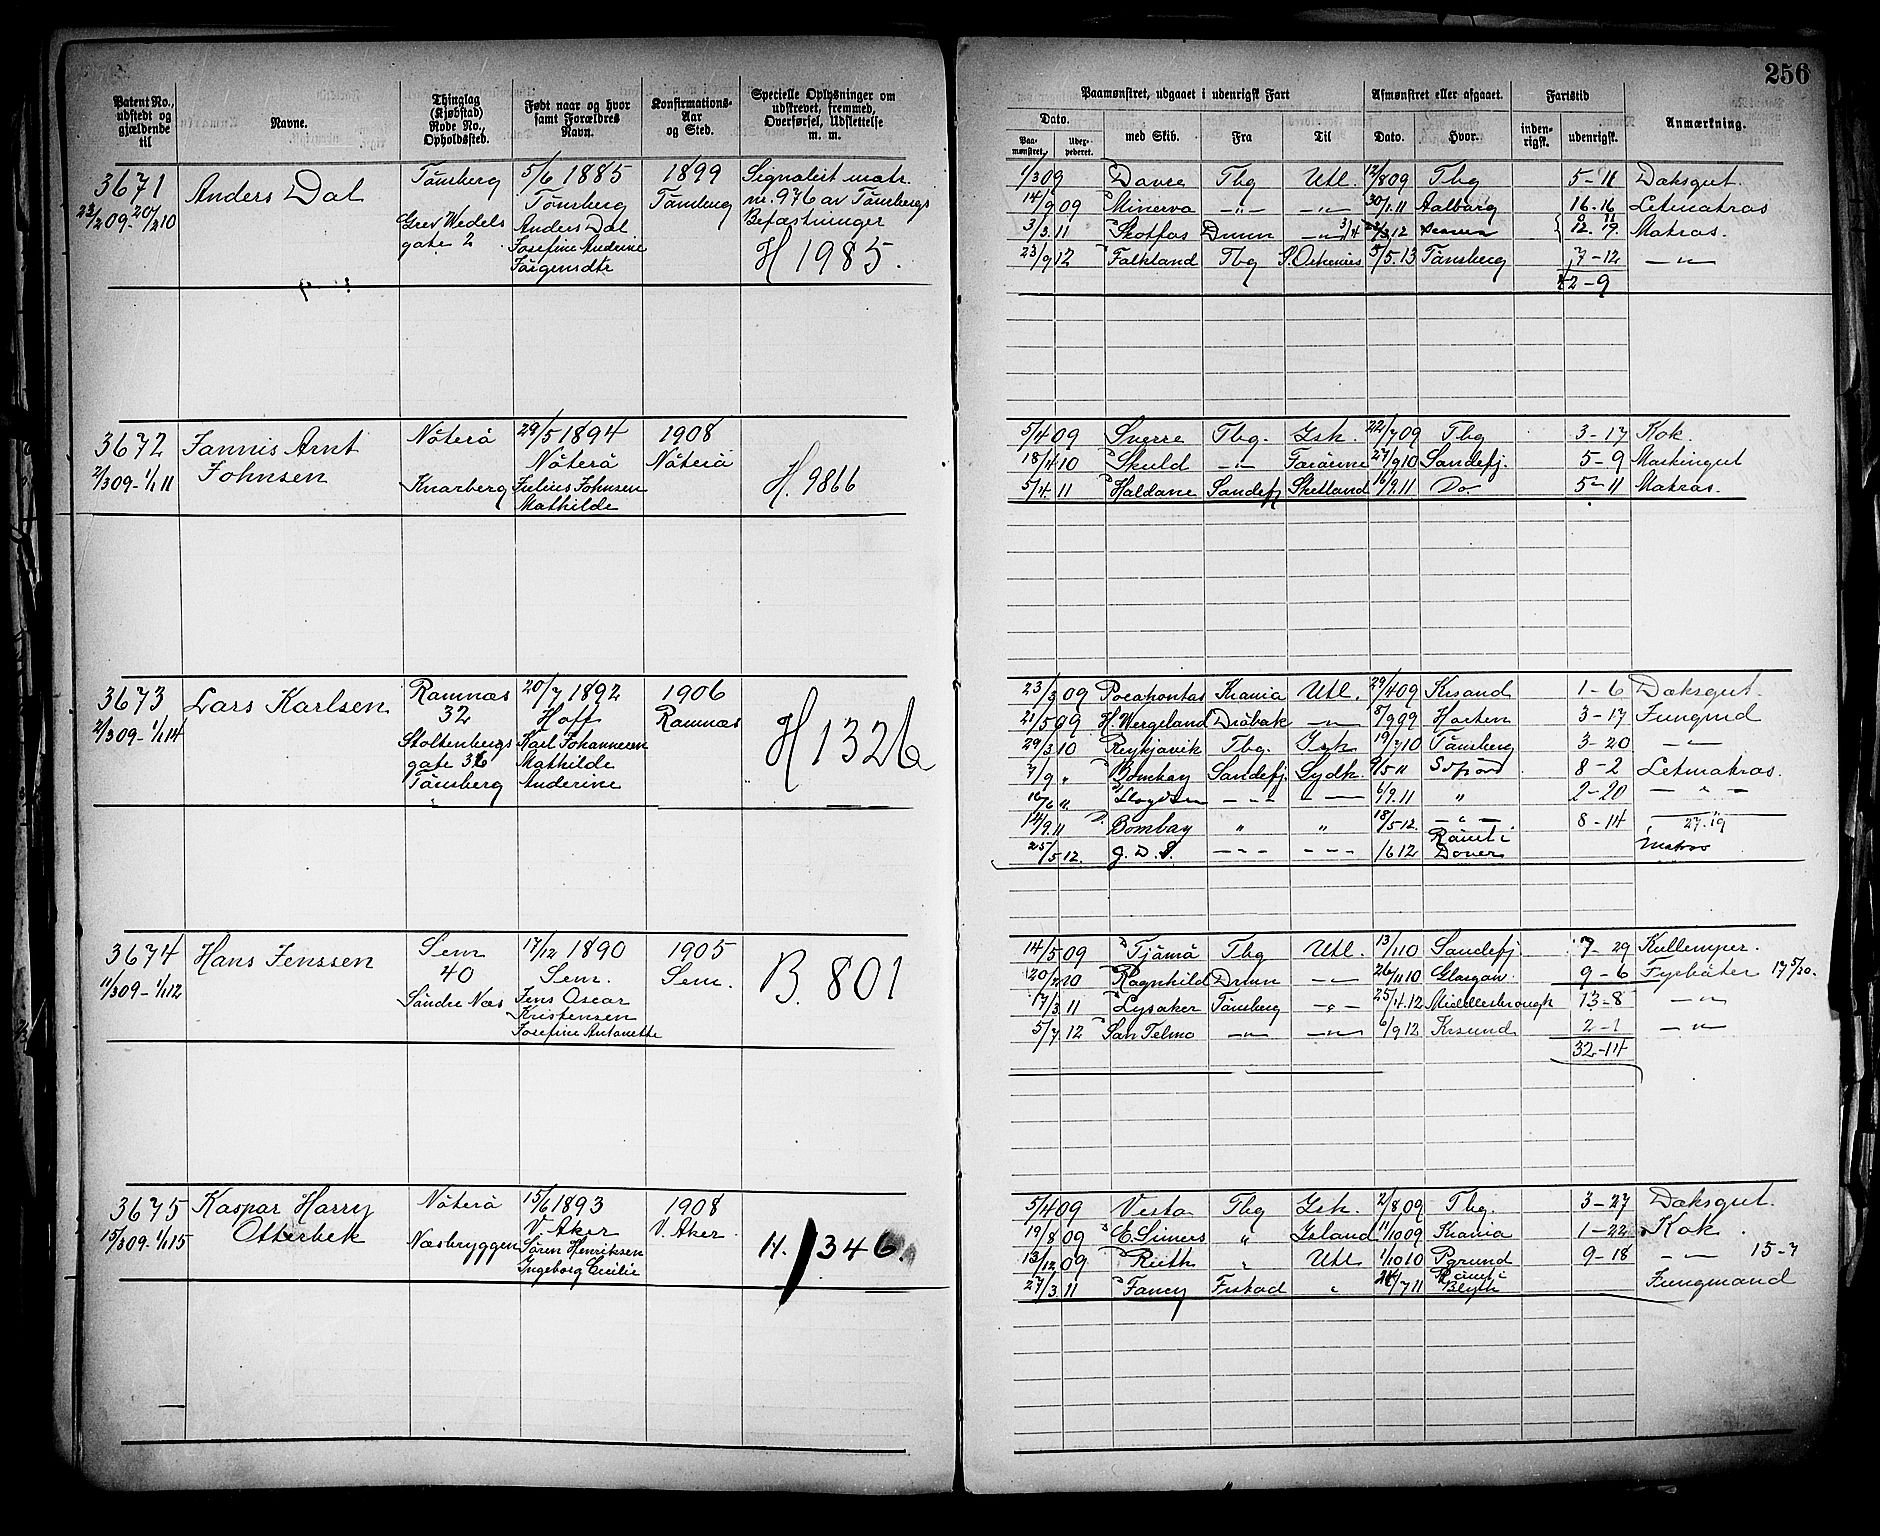 256
Patent No., udstedt og gjældende til
Navne.
Thinglag (Kjøbstad) Rode No., Opholdssted.
Født naar og hvor samt Forældres Navn.
Konfirmations-Aar og Sted.
Specielle Oplysninger om udstrevet, fremmed, Overførsel, Udslettelse m. m.
Paamønstret, udgaaet i udenrigsk Fart
Afmønstret eller afgaaet.
Fartstid
Anmærkning.
Dato.
Paa-mønstret.
med Skib.
Fra
Til
Dato.
Hvor.
inden-rigsk.
udenrigsk.
3671
23/2 09-20/2 10
Anders Dal
Tönsberg
Grev Wedels
gate 2
5/6 1885
Tönsberg
Anders Dal
Josefine Andrine
Jörgensdtr
1899
Tönsberg
Signalist matr.
nr. 976 av Tönsbergs
Befæstninger
H 1985.
1/3 09 Danse Tbg Utl. 17/8 09 Tbg 5-11 Dæksgut.
14/9 09 Minerva -"- -"- 30/1 11 Aalborg 16-16 Letmatros
3/3 11 Skotfos Drmn -"- 3/4 12 12.19. Matros.
23/9 12 Falkland Tbg 5/5.13 Tönsberg 7-12 -"-
42-9
3672
2/3 09-1/1 11
Jannis Arnt
Johnsen
Nöterö
Knarberg
29/5 1894
Nöterö
Julius Johnsen
Mathilde
1908
Nöterö
H. 9866
5/4 09 Sverre Tbg. Isk. 22/7 09 Tbg 3-17 Kok.
18/4 10 Skuld -"- Færöerne 27/9 10 Sandefj. 5-9 Maskingut
5/4 11 Haldane Sandefj Shetland 16/9.11 Do 5-11 Matros.
3673
2/3 09-1/1 14
Lars Karlsen
Ramnæs
32
Stoltenbergs
gate 36
Tönsberg
20/7 1892
Hoff
Karl Johannesen
Mathilde
Anderine
1906
Ramnæs
H 1326
23/3 09 Pocahontas Krania Utl. 29/4 09 Krsand 1-6 Dæksgut.
21/5 09 H. Wergeland Dröbak -"- 8/9 09 Horten 3-17 Jungmd
29/3 10 Reykjavik Tbg. Isk 19/7 10 Tönsberg 3-20 -"-
7/9 " Bombay Sandefj. Sydh. 9/5 11 8-2 Letmatros.
16/6 11 -"- -"- 6/9.11 " 2-20 -"-
14/9.11 Bombay " " 18/5 12. -"- 8-14 27.19
25/5 12. J. D. S. -"- -"- 1/6 12 Römt i
Dover Matros
3674
11/3 09-1/1 12
Hans Jenssen
Sem
40
Söndre Næs
17/12 1890
Sem.
Jens Oscar
Kristensen
Josefine Antonette
1905
Sem.
B. 801
14/5 09 Tjömö Tbg Utl. 13/1 10 Sandefj 7-29 Kullemper.
20/2 10 Ragnhild Drmn -"- 26/11 10 Glasgow. 9-6 Fyrböter 17 5/30.
17/3 11 Lysaker Tönsberg -"- 25/4.12 Middlesbrough 13-8 -"-
5/7 12 San Telmo -"- -"- 6/9 12 Krsund 2-1 -"-
32-14
3675
15/3 09-1/1 15
Kaspar Harry
Otterbek
Nöterö
Næsbryggen
15/6 1893
V. Aker
Sören Henriksen
Ingeborg Cecilie
1908
V. Aker.
H. 1346.
5/4 09 Vesta Tbg Isk. 2/8 09 Tbg. 3-27 Dæksgut.
19/8 09 E. Simers " Island 11/10 09 Krania 1-22 Kok.
13/12 09 Ruth " Utl 1/10 10 Pgrund 9-18 -"- 15-7
27/3.11 Fancy Frstad " 24/7 11 Römt i
Blyth Jungmand